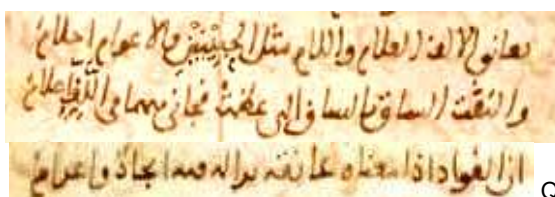 تعانق الالف العلام واللام مثل الحبيبين فالاعوام احلام
والتفت الساق بالساق التى عظمت فجانى منهما فى اللف اعلام
ان الفواد اذا معناه عانقه بدا له فيه ايجاد واعدام Q